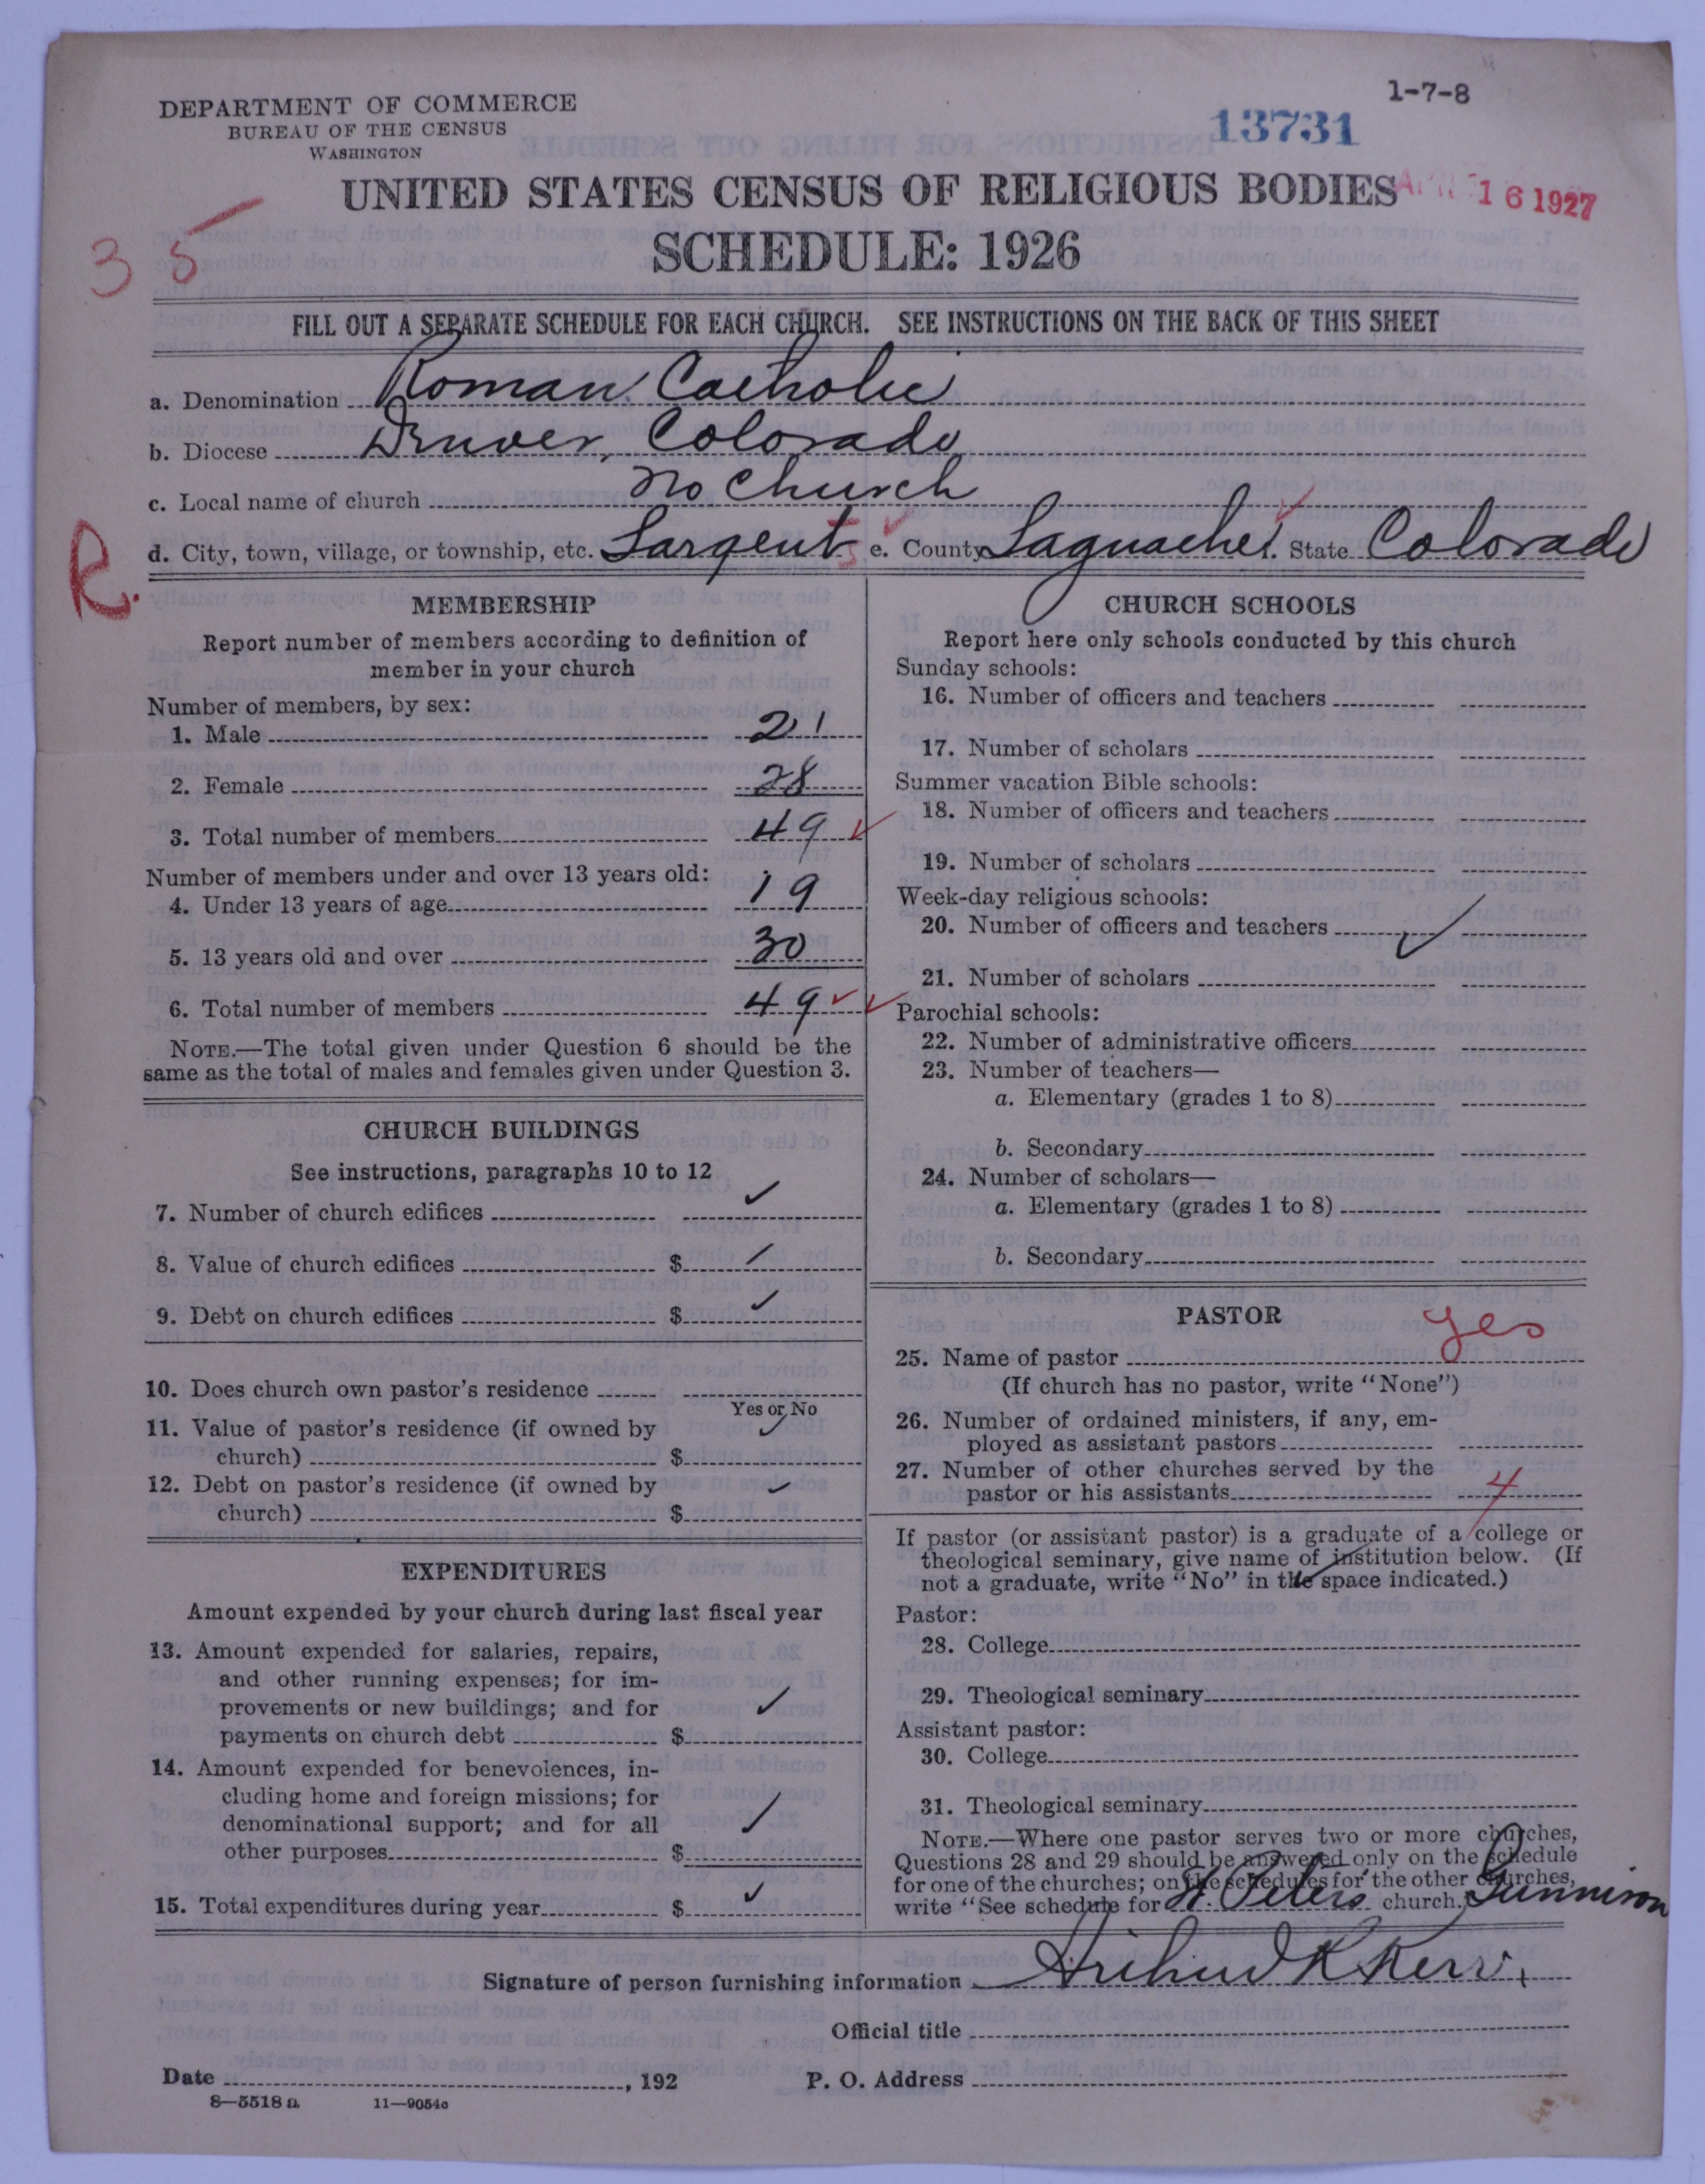 1-7-8
DEPARTMENT OF COMMERCE
BUREAU OF THE CENSUS
WASHINGTON
13731
APR 16 1927
UNITED STATES CENSUS OF RELIGIOUS BODIES
SCHEDULE: 1926
35
FILL OUT A SEPARATE SCHEDULE FOR EACH CHURCH. SEE INSTRUCTIONS ON THE BACK OF THIS SHEET
a. Denomination Roman Catholic
b. Diocese Denver, Colorado
c. Local name of church No Church
R.
d. City, town, village, or township, etc. Sargents e. County Saguache State Colorado
MEMBERSHIP
Report number of members according to definition of
member in your church
Number of members, by sex:
1. Male 21
2. Female 28
3. Total number of members 49 ✓
Number of members under and over 13 years old:
4. Under 13 years of age 19
5. 13 years old and over 30
6. Total number of members 49 ✓ ✓
NOTE.—The total given under Question 6 should be the
same as the total of males and females given under Question 3.
CHURCH BUILDINGS
See instructions, paragraphs 10 to 12
7. Number of church edifices ✓
8. Value of church edifices $ ✓
9. Debt on church edifices $ ✓
10. Does church own pastor's residence
Yes or No
11. Value of pastor's residence (if owned by
church) $ ✓
12. Debt on pastor's residence (if owned by
church) $ ✓
EXPENDITURES
Amount expended by your church during last fiscal year
13. Amount expended for salaries, repairs,
and other running expenses; for im-
provements or new buildings; and for
payments on church debt $ ✓
14. Amount expended for benevolences, in-
cluding home and foreign missions; for
denominational support; and for all
other purposes $ ✓
15. Total expenditures during year $ ✓
CHURCH SCHOOLS
Report here only schools conducted by this church
Sunday schools:
16. Number of officers and teachers
17. Number of scholars
Summer vacation Bible schools:
18. Number of officers and teachers
19. Number of scholars
Week-day religious schools:
20. Number of officers and teachers ✓
21. Number of scholars
Parochial schools:
22. Number of administrative officers
23. Number of teachers—
a. Elementary (grades 1 to 8)
b. Secondary
24. Number of scholars—
a. Elementary (grades 1 to 8)
b. Secondary
PASTOR
25. Name of pastor yes
(If church has no pastor, write "None")
26. Number of ordained ministers, if any, em-
ployed as assistant pastors
27. Number of other churches served by the
pastor or his assistants 4
If pastor (or assistant pastor) is a graduate of a college or
theological seminary, give name of institution below. (If
not a graduate, write "No" in the space indicated.)
Pastor:
28. College
29. Theological seminary
Assistant pastor:
30. College
31. Theological seminary
NOTE.—Where one pastor serves two or more churches,
Questions 28 and 29 should be answered only on the schedule
for one of the churches; on the schedules for the other churches,
write "See schedule for St. Peters church. Gunnison
Signature of person furnishing information Arthur R Kerr.
Official title
Date , 192 P. O. Address
8—5518 a 11—9054c